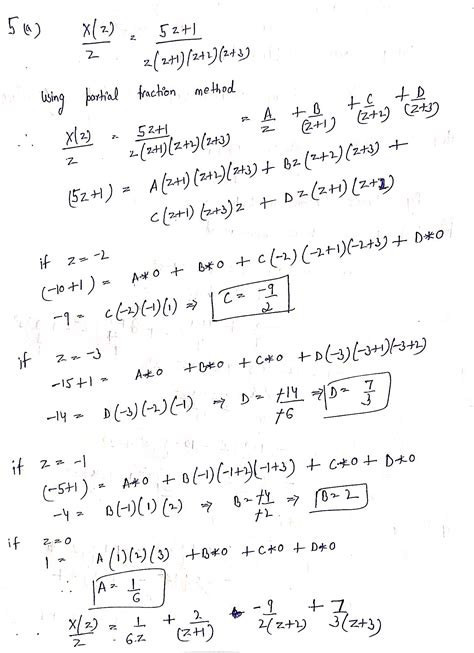 5 (a) X(z)/z = 5z+1 / z(z+1)(z+2)(z+3)
Using partial fraction method
∴ X(z)/z = 5z+1 / z(z+1)(z+2)(z+3) = A/z + B/(z+1) + C/(z+2) + D/(z+3)
(5z+1) = A(z+1)(z+2)(z+3) + Bz(z+2)(z+3) +
C(z+1)(z+3)z + Dz(z+1)(z+2)
if z = -2
(-10+1) = A*0 + B*0 + C(-2)(-2+1)(-2+3) + D*0
-9 = C(-2)(-1)(1) ⇒ C = -9/2
if z = -3
-15+1 = A*0 + B*0 + C*0 + D(-3)(-3+1)(-3+2)
-14 = D(-3)(-2)(-1) ⇒ D = -14/-6 ⇒ D = 7/3
if z = -1
(-5+1) = A*0 + B(-1)(-1+2)(-1+3) + C*0 + D*0
-4 = B(-1)(1)(2) ⇒ B = -4/-2 ⇒ B = 2
if z=0
1 = A(1)(2)(3) + B*0 + C*0 + D*0
∴ A = 1/6
∴ X(z)/z = 1/6.z + 2/(z+1) -9/2(z+2) + 7/3(z+3)